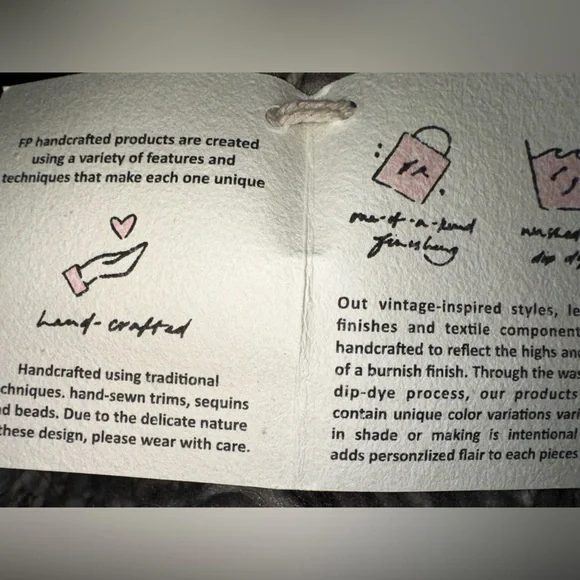 FP handcrafted products are created
using a variety of features and
techniques that make each one unique
hand-crafted
Handcrafted using traditional
chniques. hand-sewn trims, sequins
d beads. Due to the delicate nature
these design, please wear with care.
one-of-a-kind
finishing
washed
dip d
Out vintage-inspired styles, le
finishes and textile component
handcrafted to reflect the highs an
of a burnish finish. Through the was
dip-dye process, our products
contain unique color variations vari
in shade or making is intentional
adds personzlized flair to each pieces